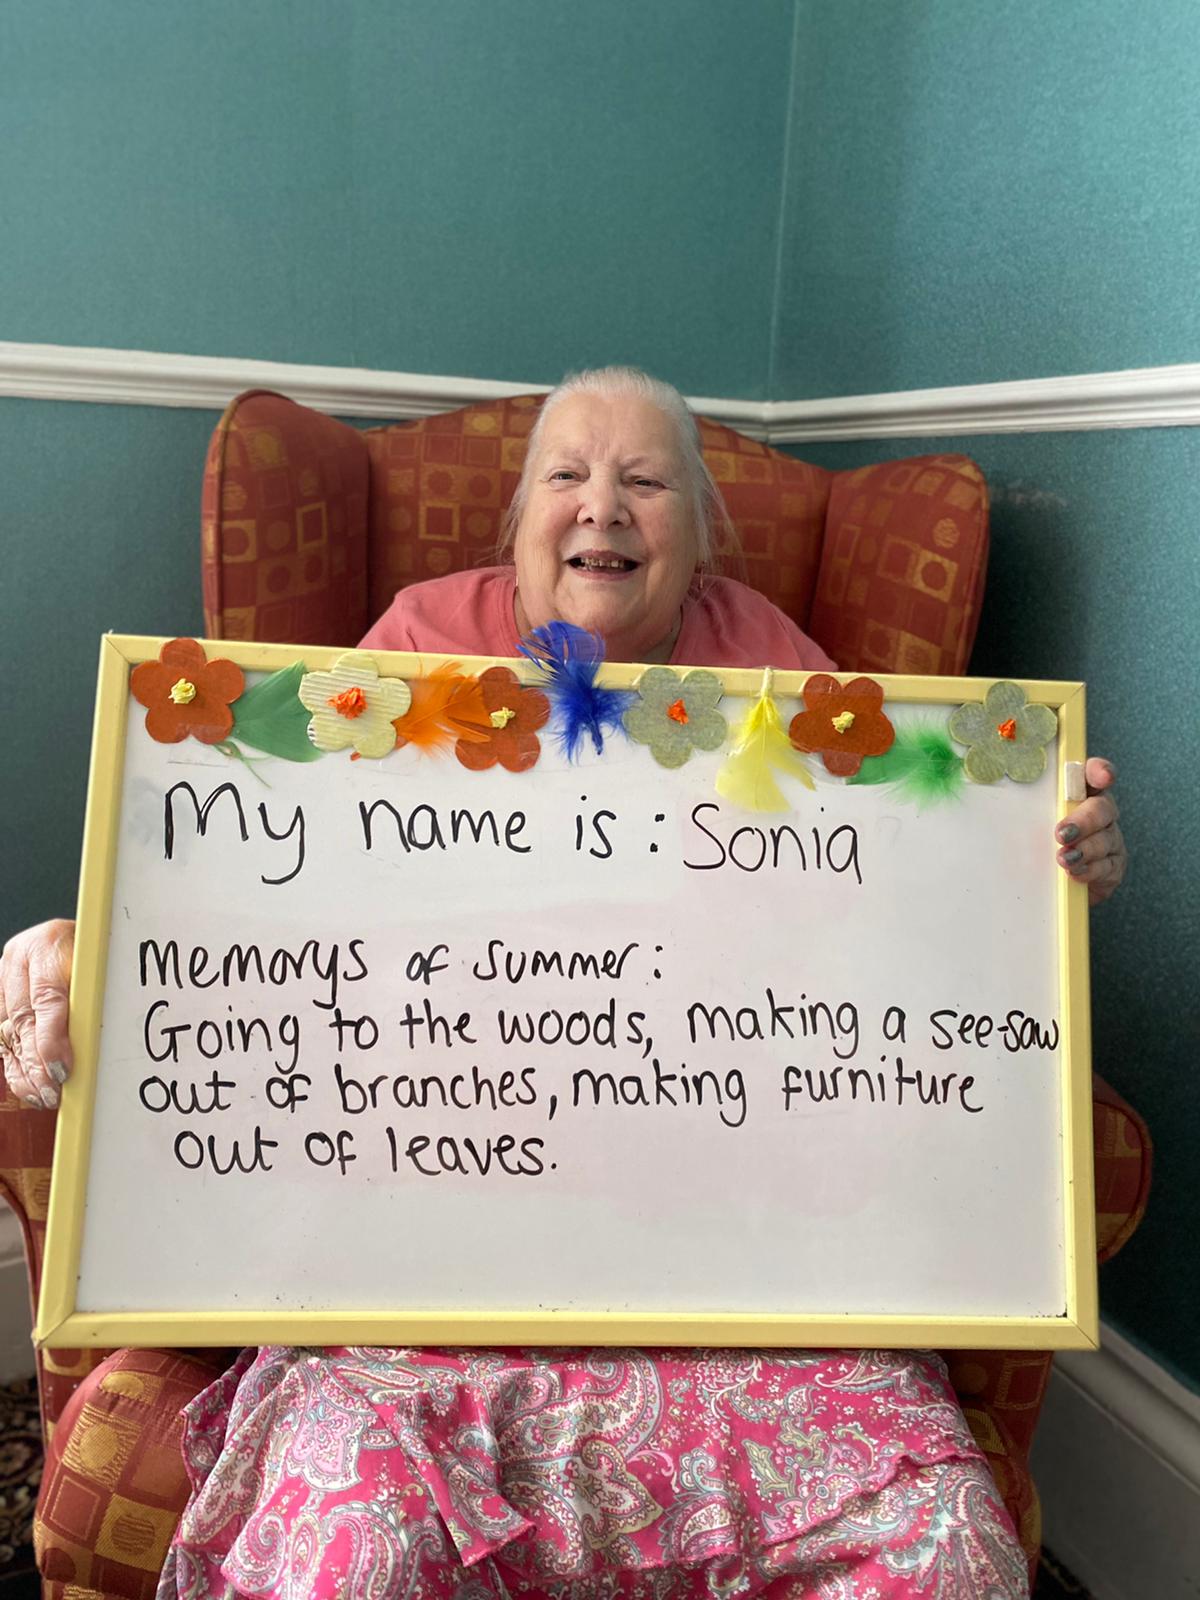 My name is: Sonia
Memorys of summer:
Going to the woods, making a see-saw
out of branches, making furniture
out of leaves.